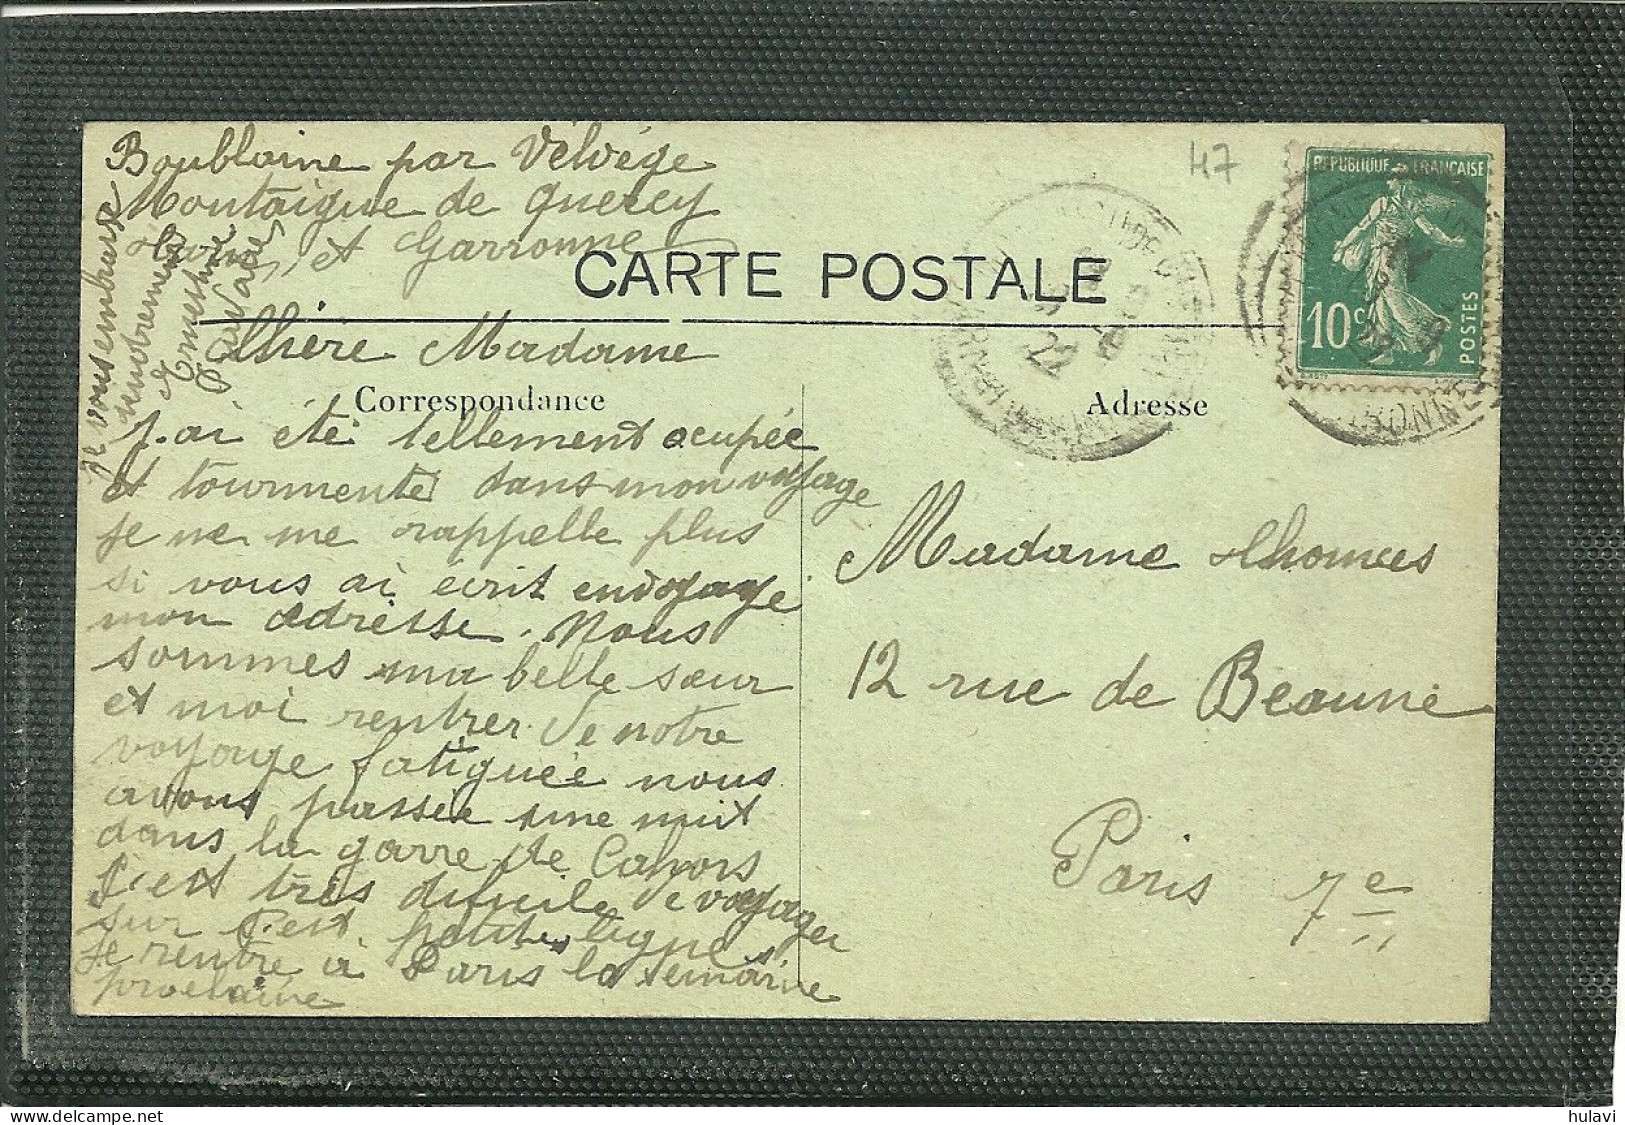 47
REPUBLIQUE FRANÇAISE
10c
POSTES
Boublaine par Vélvége
Montaigue de quercy
et Garronne
CARTE POSTALE
Chère Madame
Correspondance
Adresse
j.ai été tellement ocupée
et tourmenté dans mon voyage
je ne me rappelle plus
si vous ai écrit en voyage
mon adresse. Nous
sommes ma belle sœur
et moi rentrer de notre
voyage fatiguée nous
avons passée une nuit
dans la garre de Cahors
c'est très dificile de voyager
sur c'est petites lignes
je rentre à Paris la semaine
procaine
je vous embrasse
Ernestine
Madame Thomas
12 rue de Beaune
Paris 7e
hulavi